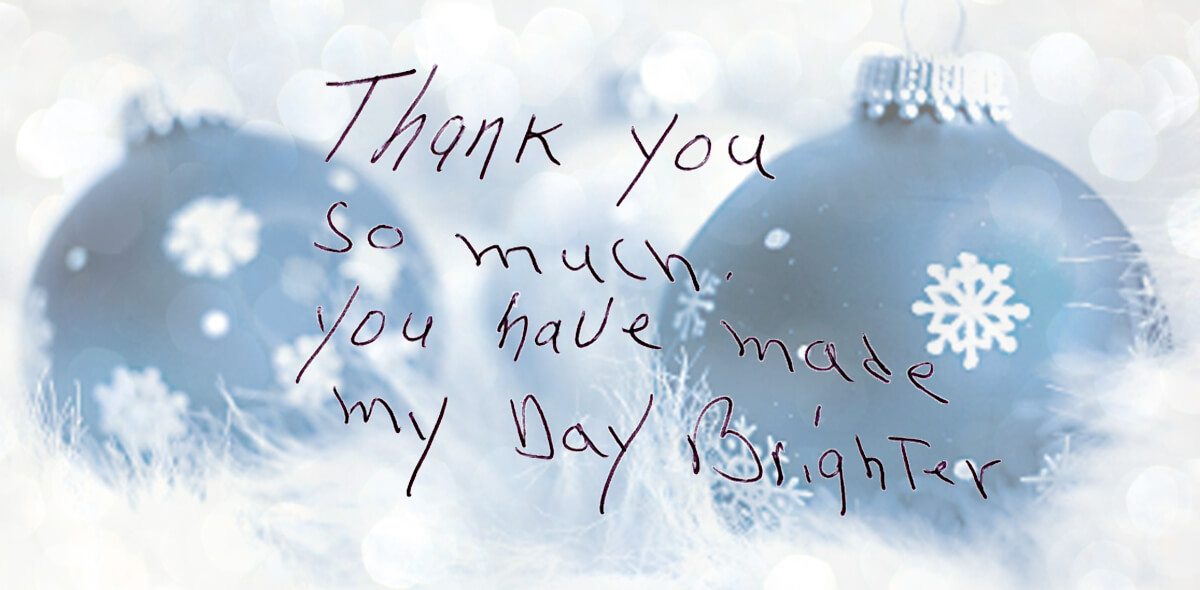 Thank you
so much.
you have made
my Day Brighter